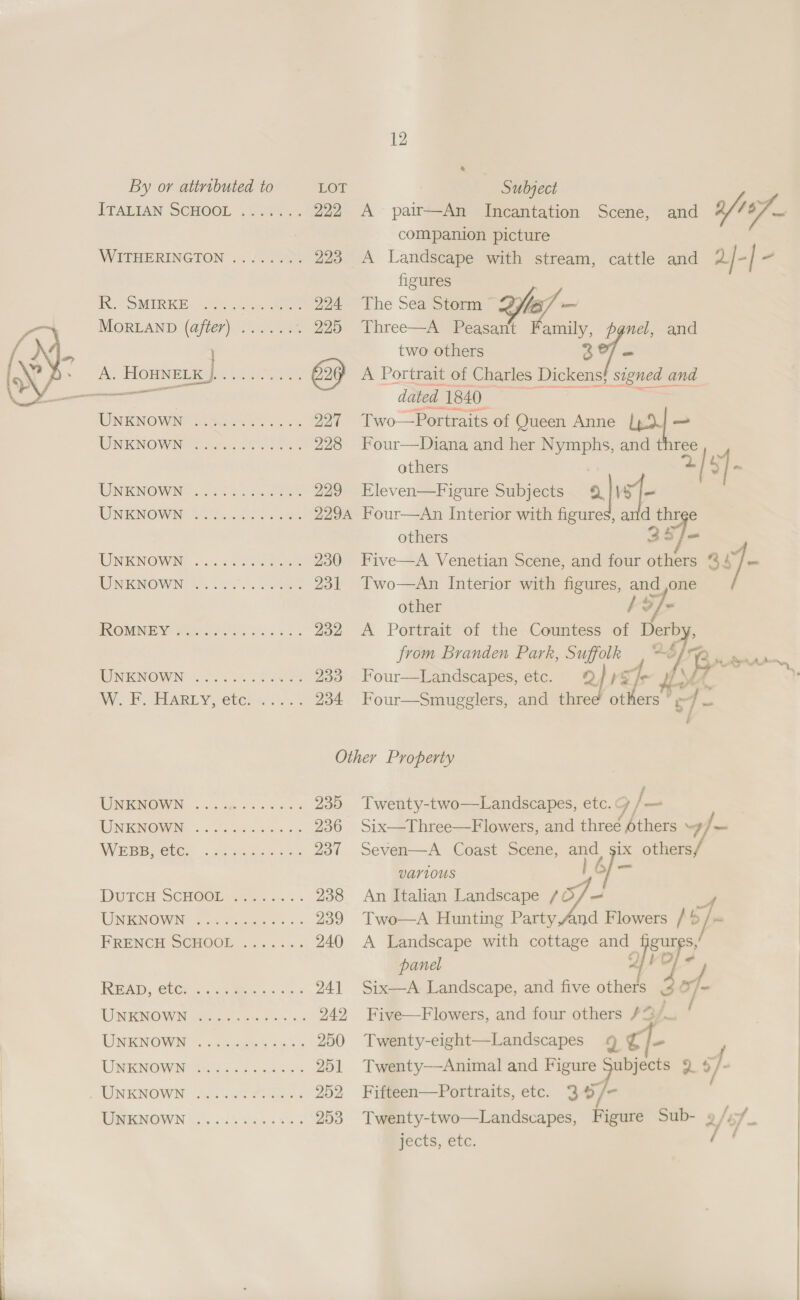 12
By or attributed to LOT Subject
ITALIAN SCHOOL ....... 222 A pair—An Incantation Scene, and
companion picture
WITHERINGTON ........ 223 A Landscape with stream, cattle and 2/-/-
figures
R. SMIRKE ............ 224 The Sea Storm
MORLAND (after) ....... 225 Three—A Peasant Family, panel, and
two others
A. HOHNELK .......... 226 A Portrait of Charles Dickens, signed and
dated 1840
UNKNOWN ............ 227 Two—Portraits of Queen Anne
UNKNOWN ............ 228 Four—Diana and her Nymphs, and three
others
UNKNOWN ............ 229 Eleven—Figure Subjects
UNKNOWN ............ 229A Four—An Interior with figures, and three
others 35/-
UNKNOWN ............ 230 Five—A Venetian Scene, and four others
UNKNOWN ............ 231 Two—An Interior with figures, and one
other
ROMNEY .............. 232 A Portrait of the Countess of Derby,
from Branden Park, Suffolk
UNKNOWN ............ 233 Four—Landscapes, etc.
W. F. HARLY, etc. ..... 234 Four—Smugglers, and three others
Other Property
UNKNOWN ............ 235 Twenty-two—Landscapes, etc.
UNKNOWN ............ 236 Six—Three—Flowers, and three others
WEBB, etc. ........... 237 Seven—A Coast Scene, and six others,
various
DUTCH SCHOOL ........ 238 An Italian Landscape
UNKNOWN ............ 239 Two—A Hunting Party and Flowers
FRENCH SCHOOL ....... 240 A Landscape with cottage and figures,
panel
READ, etc. ............ 241 Six—A Landscape, and five others
UNKNOWN ............ 242 Five—Flowers, and four others
UNKNOWN ............ 250 Twenty-eight—Landscapes
UNKNOWN ............ 251 Twenty—Animal and Figure Subjects
UNKNOWN ............ 252 Fifteen—Portraits, etc. 35/-
UNKNOWN ............ 253 Twenty-two—Landscapes, Figure Sub-
jects, etc.